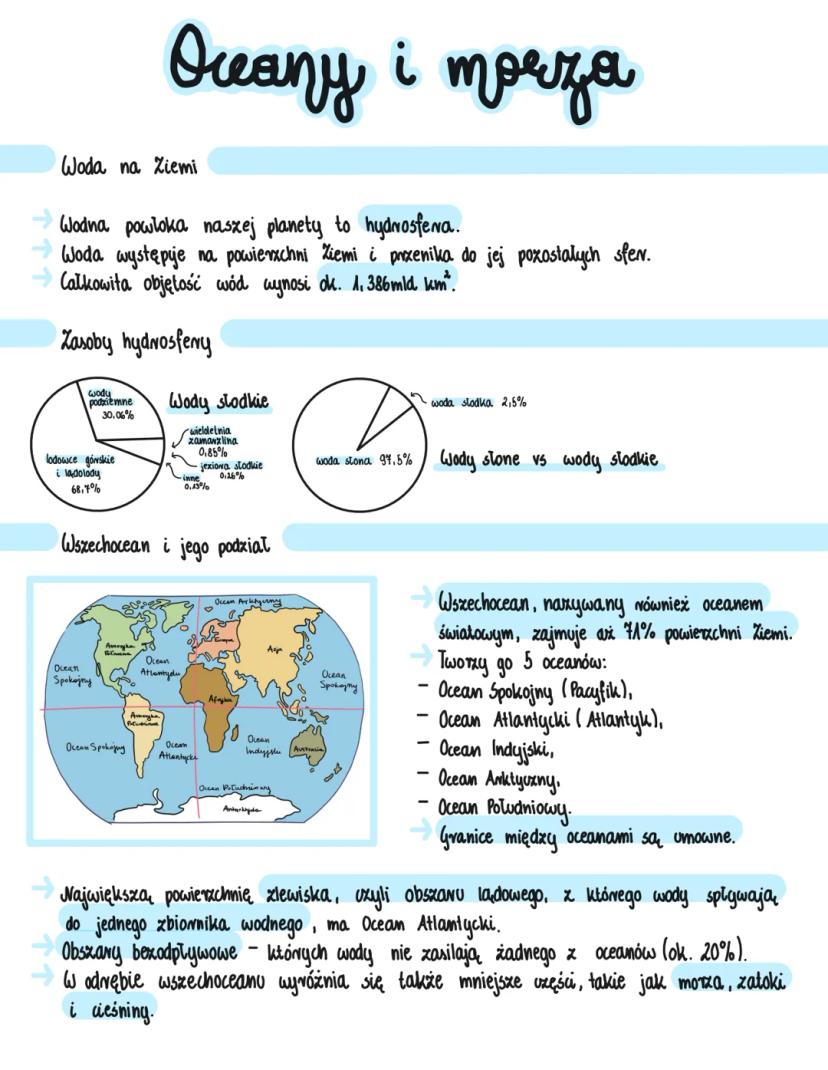 Oceany i morza
Woda na Ziemi
→ Wodna powłoka naszej planety to hydrosfera.
→ Woda występuje na powierzchni Ziemi i przenika do jej pozostałych sfer.
→ Całkowita objętość wód wynosi ok. 1,386mld km³.
Zasoby hydrosfery
wody
podziemne
30,06%
lodowce górskie
i lądolody
68,7%
Wody słodkie
wieloletnia
zmarzlina
0,85%
jeziora słodkie
0,26%
inne
0,13%
woda słodka 2,5%
woda słona 97,5%
Wody słone vs wody słodkie
Wszechocean i jego podział
Ocean Arktyczny
Ameryka
Północna
Europa
Azja
Ocean
Spokojny
Ocean
Atlantycki
Ocean
Spokojny
Afryka
Ameryka
Południowa
Ocean Spokojny
Ocean
Atlantycki
Ocean
Indyjski
Australia
Ocean Południowy
Antarktyda
→ Wszechocean, nazywany również oceanem
światowym, zajmuje aż 71% powierzchni Ziemi.
→ Tworzy go 5 oceanów:
- Ocean Spokojny (Pacyfik),
- Ocean Atlantycki (Atlantyk),
- Ocean Indyjski,
- Ocean Arktyczny,
- Ocean Południowy.
→ Granice między oceanami są umowne.
→ Największą powierzchnię zlewiska, czyli obszaru lądowego, z którego wody spływają
do jednego zbiornika wodnego, ma Ocean Atlantycki.
→ Obszary bezodpływowe - których wody nie zasilają żadnego z oceanów (ok. 20%).
→ W odrębie wszechoceanu wyróżnia się także mniejsze części, takie jak morza, zatoki
i cieśniny.